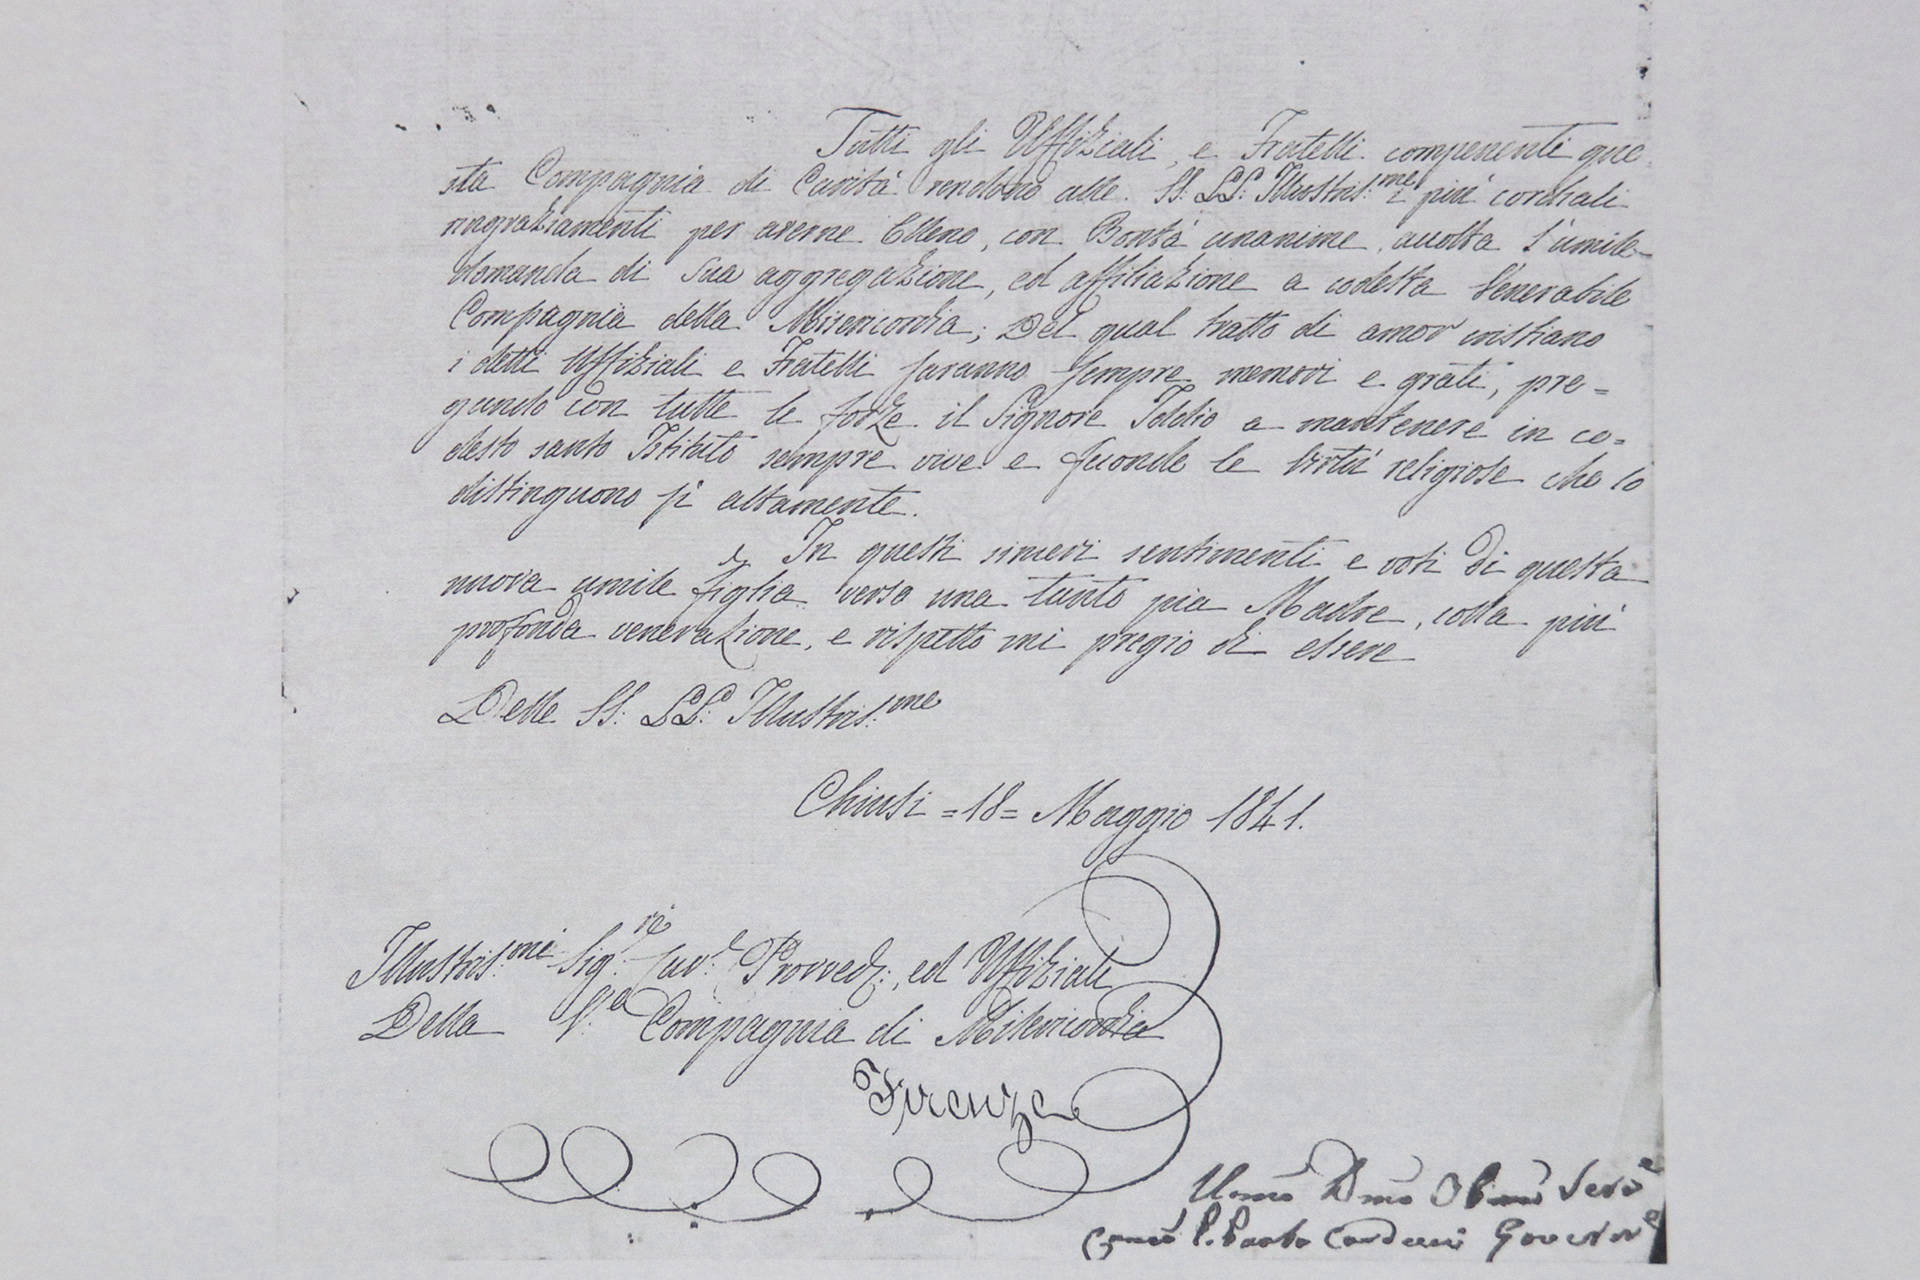 Tutti gli Uffiziali, e Fratelli componenti que
sta Compagnia di Carità rendono alle SS: LL: Illustris:me i più cordiali
ringraziamenti per averne Elleno, con Bontà unanime, accolta l'umile
domanda di sua aggregazione, ed affiliazione a codesta Venerabile
Compagnia della Misericordia; Del qual tratto di amor cristiano
i detti Uffiziali e Fratelli saranno sempre memori e grati, pre=
gando con tutte le forze il Signore Iddio a mantenere in co=
desto santo Istituto sempre vive e feconde le virtù religiose che lo
distinguono sì altamente.
In questi sinceri sentimenti e voti di questa
nuova umile figlia verso una tanto pia Madre, colla più
profonda venerazione, e rispetto mi pregio di essere
Delle SS: LL: Illustris:me
Chiusi =18= Maggio 1841.
Illustris:mi Sig:ri Provved:, ed Uffiziali
Della V:le Compagnia di Misericordia
Firenze
Umo Dmo Obmo Serve
P. Paolo Carducci Governre